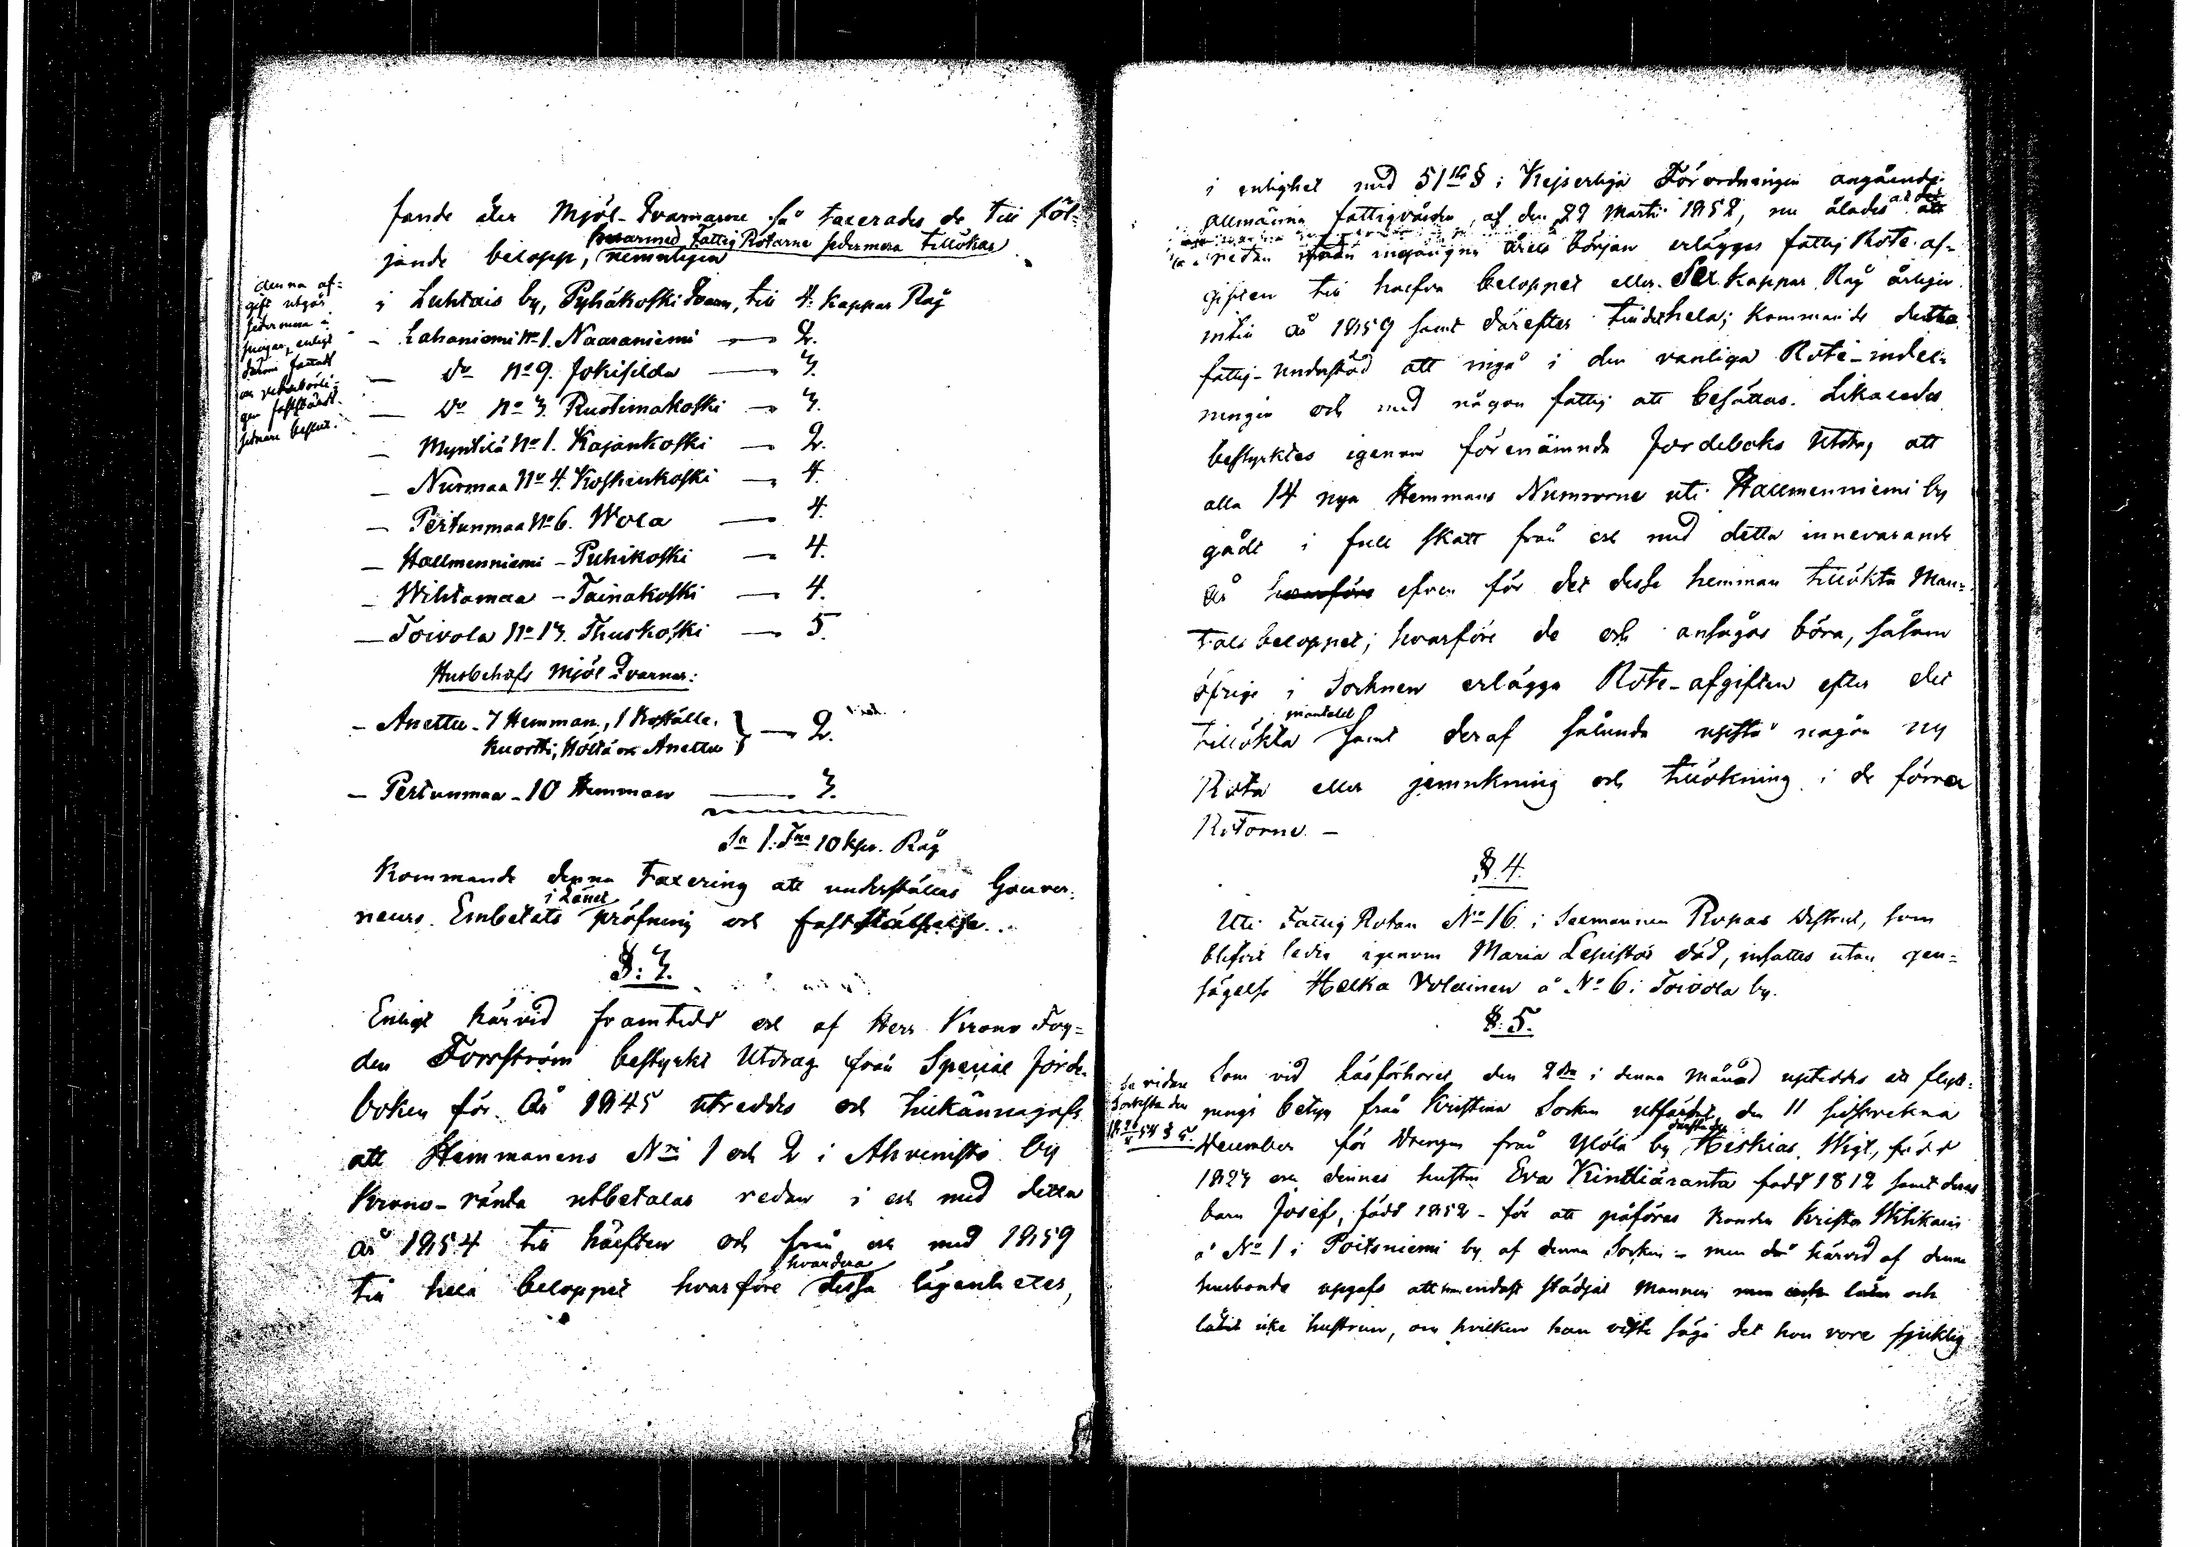 fande åter Mjöl-Qvarnarne så taxerades de till föl-
jande belopp, hvarmed Fattig Rotarne sedermera tillökas
nemnligen
denna af-
gift utgår
sedermera i
enligt
i Luhtais by, Pyhäkoski Qvarn, till 4. kappar Råg
- Lahaniemi No 1. Naaraniemi — 2.
— Do No 9. Jokisilda — 3.
— Do No 3. Ruotimakoski — 3.
— Myntilä No 1. Kajankoski — 2.
— Nurmaa No 4. Koskenkoski — 4.
— Pertunmaa No 6. Wola — 4.
— Hallmenniemi - Puhikoski — 4.
— Wihtamaa - Tainakoski — 4.
— Toivola No 13. Thuskoski — 5.
Husbehofs Mjöl Qvarnar:
- Anettu - 7 Hemman, 1
Kuortti, Höltä och Anettu } — 2.
- Pertunmaa - 10 Hemman — 3.
Sa 1. Tna 10 kpr. Råg
Kommande denna Taxering att underställas Gouver-
neurs Embetets i Länet pröfning och fastställelse.
§. 3.
Enligt härvid framtedt och af Herr Krono Fog-
den Forsström bestyrkt Utdrag från Special Jorde-
boken för År 1845 utreddes och tillkännagafs
att Hemmanens Nri 1 och 2 i Ahvenisto by
Krono-ränta utbetalas redan i och med detta
år 1854 till hälften och från och med 1859
till hela beloppet hvarföre hvardera dessa lägenheter,
i enlighet med 51sta § i Kejserliga Förordningen angående
allmänna fattigvården, af den 22 Martii 1852, nu ålades att
redan från ingången årets början erlägga fattig Rote af-
giften till halfva beloppet eller Sex kappar Råg årligen
intill år 1859 samt därefter hela; kommande detta
fattig-understöd att ingå i den vanliga Rote-indel-
ningen och med någon fattig att besättas. Likaledes
bestyrktes igenom förenämnda Jordeboks Utdrag att
alla 14 nya Hemmans Numrorne uti Hallmenniemi by
gådt i full skatt från och med detta innevarande
År hvarföre efven för det dessa hemman tillökta Man-
tals beloppet; hvarföre de och ansågos böra, såsom
öfrige i Socknen erlägga Rote-afgiften efter det
tillökta mantalet samt deraf sålunda uppstå någon ny
Rota eller jemnkning och tillökning i de förra
Rotorne. —
§. 4.
Uti Fattig Rotan No 16. i Seemannen Ropas District, som
blifvit ledig igenom Maria Lepistös död, insattes utan gen-
sägelse Helka Valainen å No 6 i Toivola by.
§. 5.
Se vidare
den
18 § 5.
Som vid Läsförhöret den 2dra i denna Månad upteddes ett flytt-
nings betyg från Kristina Socken utfärdat den 11 sistvekna
December för Drengen från Ylölä by Hiskias Wigt, född
1823 och dennes hustru Eva Kinttiäranta född 1812 samt deras
barn Josef, född 1852 - för att påföras Bonden Krister Witikain
å No 1 i Poitsniemi by af denna Socken - men då härvid af denne
husbonde uppgafs att han endast städjat mannen men och
låtit icke hustrun, om hvilken han viste säga det hon vore sjuklig